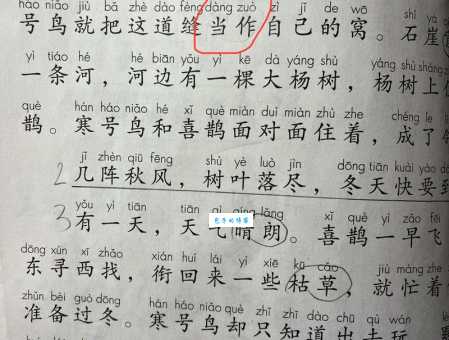 hào niǎo jiù bǎ zhè dào fèng dàng zuò zì jǐ de wō shí yá
号鸟就把这道缝当作自己的窝。石崖
yì tiáo hé hé biān yǒu yì kē dà yáng shù yáng shù shàng
一条河,河边有一棵大杨树,杨树上
què hán háo niǎo hé xǐ què miàn duì miàn zhù zhe chéng le
鹊。寒号鸟和喜鹊面对面住着,成了
jǐ zhèn qiū fēng shù yè luò jìn dōng tiān kuài yào
2 几阵秋风,树叶落尽,冬天快要
yǒu yì tiān tiān qì qíng lǎng xǐ què yì zǎo fēi
3 有一天,天气晴朗。喜鹊一早飞
包子的博客
dōng xún xī zhǎo xián huí lái yì xiē kū cǎo jiù máng zhe
东寻西找,衔回来一些枯草,就忙着
zhǔn bèi guò dōng hán háo niǎo què zhǐ zhī dào chū qù wán
准备过冬。寒号鸟却只知道出去玩